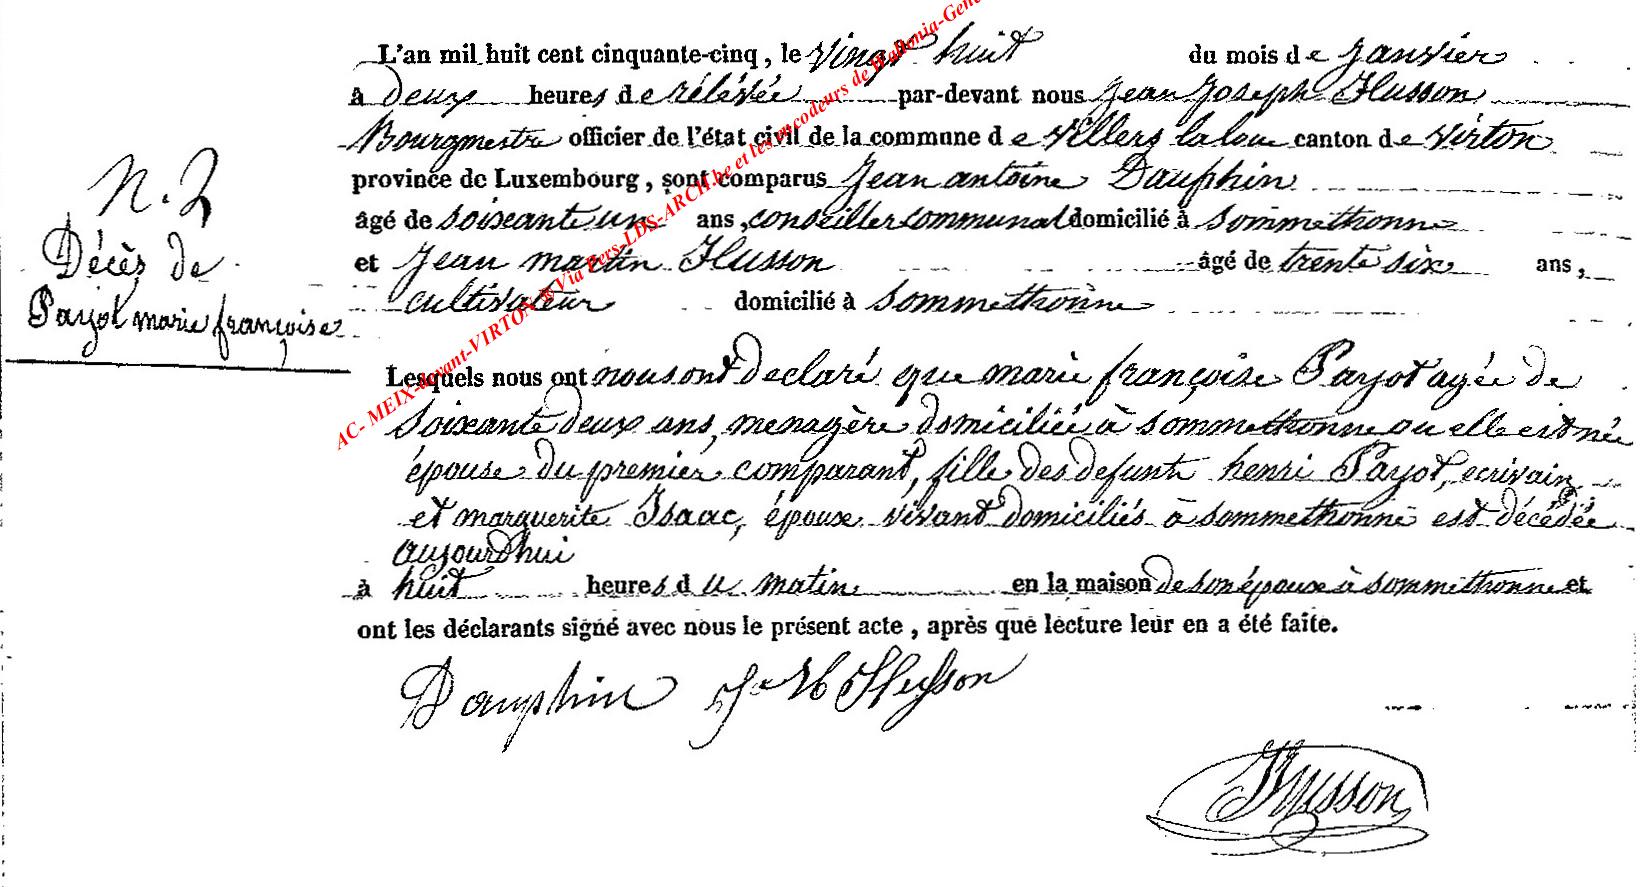 L'an mil huit cent cinquante-cinq, le vingt huit du mois de Janvier
à deux heures de rélévée par-devant nous Jean Joseph Husson
Bourgmestre officier de l'état civil de la commune de Villers la loue canton de Virton
province de Luxembourg, sont comparus Jean antoine Dauphin
âgé de soixante un ans, conseiller communal domicilié à sommethonne
et Jean martin Husson âgé de trente six ans,
cultivateur domicilié à sommethonne
N. 2
Décès de
Payot marie françoise
Lesquels nous ont nous ont declaré que marie françoise Payot agée de
soixante deux ans, menagère domiciliée à sommethonne ou elle est née
épouse du premier comparant, fille des defunts henri Payot, ecrivain
et marguerite Isaac, époux vivant domiciliés à sommethonne est décédée
aujourdhui
à huit heures du matin en la maison de son époux à sommethonne et
ont les déclarants signé avec nous le présent acte, après que lecture leur en a été faite.
Dauphin J M Husson
Husson
AC- MEIX-devant-VIRTON Via Pers-LDS-ARCH.be et les encodeurs de Wallonia-Gene